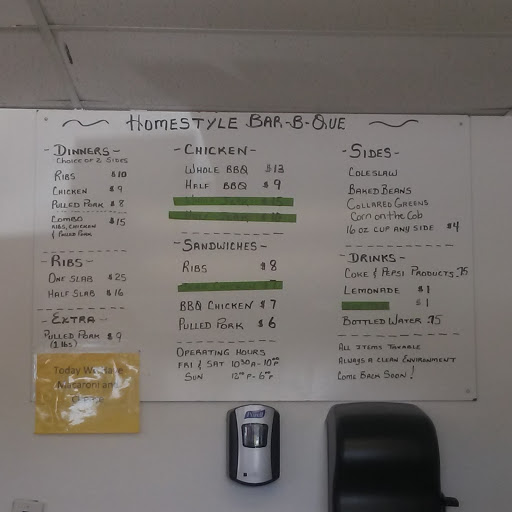 HOMESTYLE BAR-B-QUE
- DINNERS -
CHOICE OF 2 SIDES
RIBS $10
CHICKEN $9
PULLED PORK $8
COMBO $15
RIBS, CHICKEN
& PULLED PORK
- RIBS -
ONE SLAB $25
HALF SLAB $16
- EXTRA -
PULLED PORK $9
(1 lbs)
Today We Have
Macaroni and
- CHICKEN -
WHOLE BBQ $13
HALF BBQ $9
- SANDWICHES -
RIBS $8
BBQ CHICKEN $7
PULLED PORK $6
OPERATING HOURS
FRI & SAT 10:30A - 10:00P
SUN 12:00P - 6:00P
- SIDES -
COLESLAW
BAKED BEANS
COLLARED GREENS
Corn on the Cob
16 OZ CUP ANY SIDE $4
- DRINKS -
COKE & PEPSI PRODUCTS .75
LEMONADE $1
$1
BOTTLED WATER .75
ALL ITEMS TAXABLE
ALWAYS A CLEAN ENVIRONMENT
COME BACK SOON!